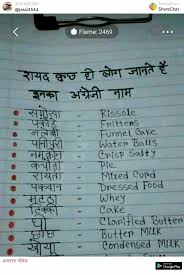 @jassi3534
ShareChat
Flame: 2469
शायद कुछ ही लोग जानते हैं
इनका अंग्रेजी नाम
समोसा Rissole
पकौड़े Frittens
जलेबी Funnel Cake
पानीपुरी Water Balls
नमकीन Crisp Salty
कचौरी Pie
रायता Mixed Curd
पकवान Dressed Food
मट्ठा Whey
टिक्की Cake
घी Clarified Butten
छाछ Butter Milk
खोया Condensed Milk
Google Play